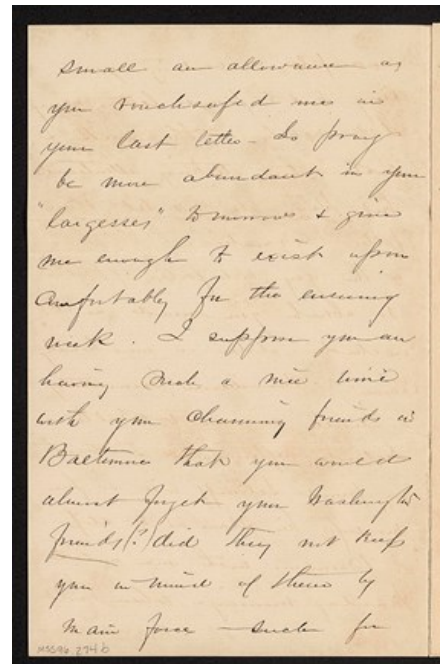 small an allowance as
you vouchsafed me in
your last letter - So pray
be more abundant in your
"largesses" tomorrow & give
me enough to exist upon
comfortably for the ensuing
week. I suppose you are
having such a nice time
with your charming friends in
Baltimore that you would
almost forget your Washington
friends (?) did they not keep
you in mind of them by
main force - such for
MSS96. 274 b